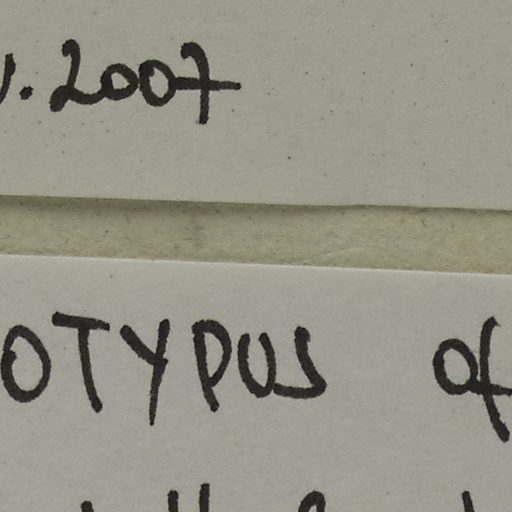 .2007
OTYPUS of